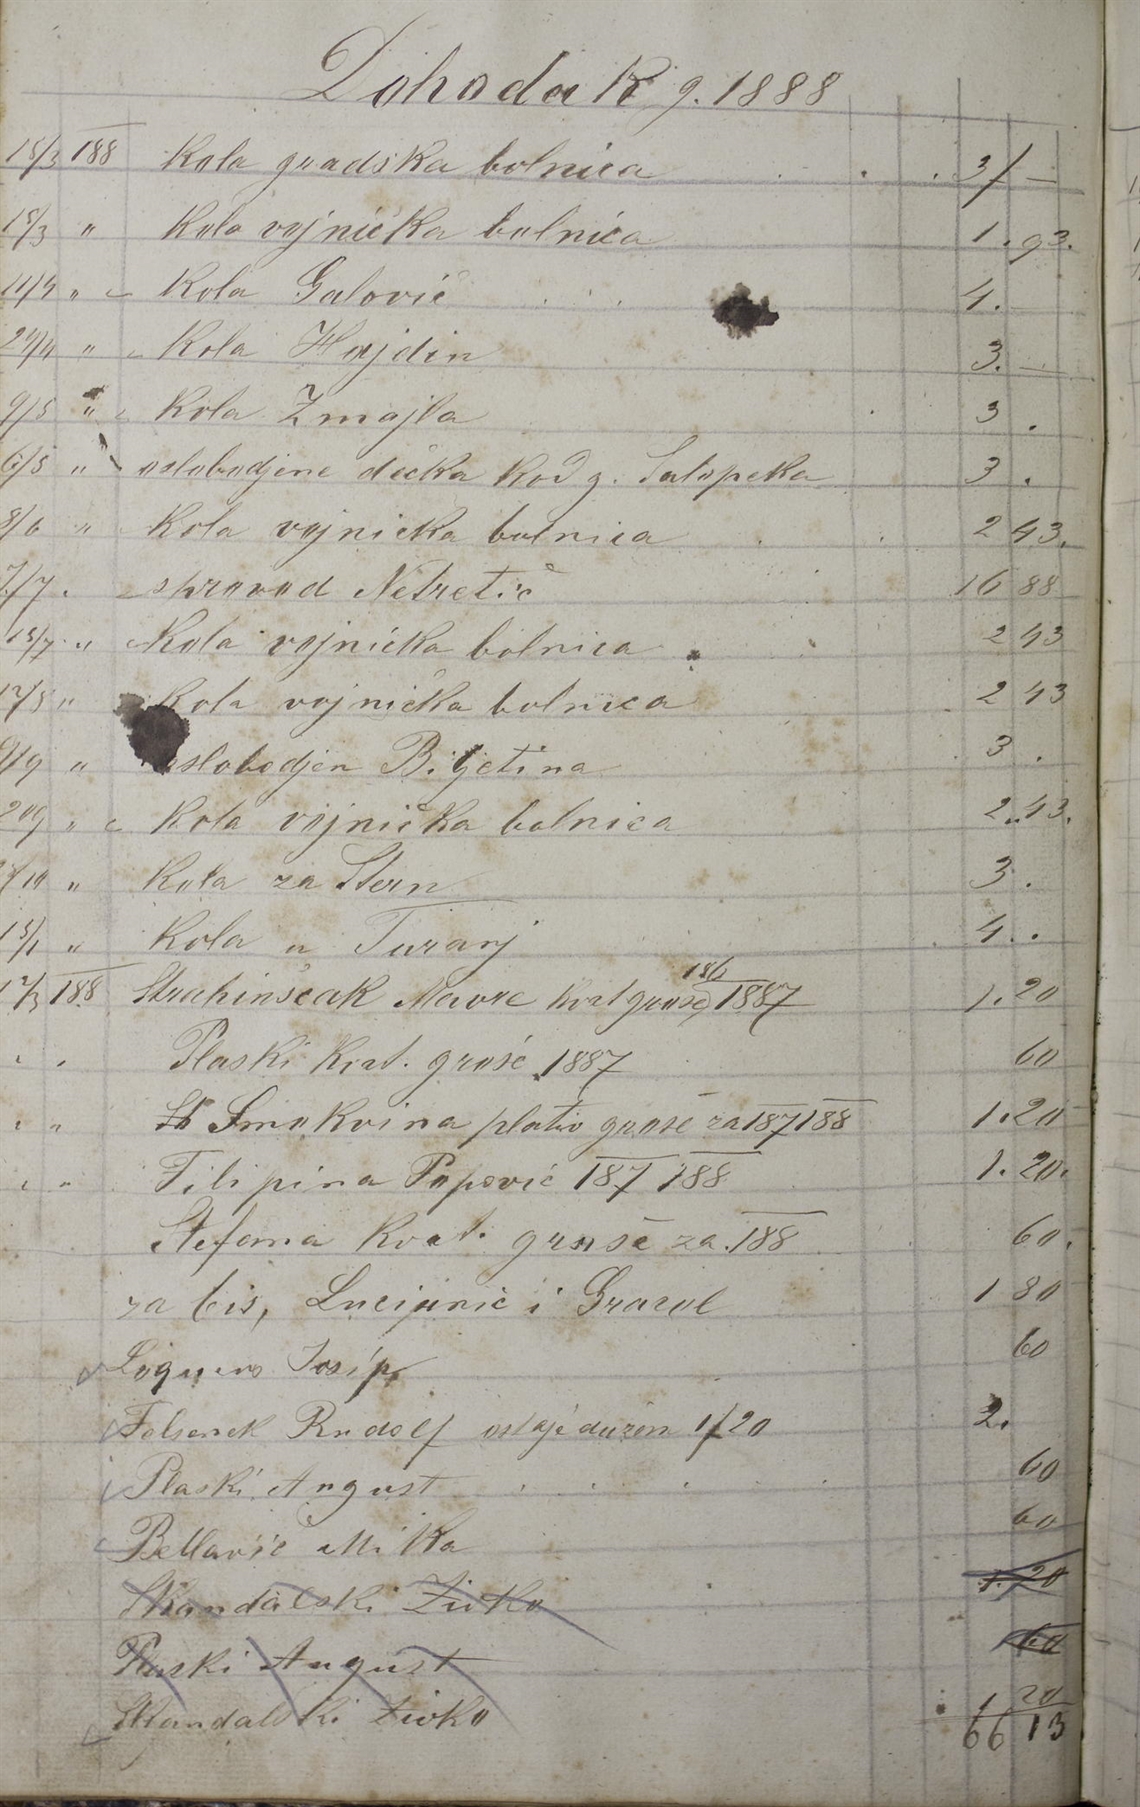 Dohodak g. 1888
15/3 188 Kola gradska bolnica . . . 3/ —
15/3 " Kola vojnička bolnica 1 . 93.
11/4 " Kola Galović . . . 4. —
24/4 " Kola Hajdin 3. —
9/5 " Kola Zmajla . 3 .
6/5 " oslobodjene dečka kod g. Salopeka 3 .
8/6 " Kola vojnička bolnica . . 2 43.
7/7 . sprovod Netretić 16 88
15/7 " Kola vojnička bolnica 2 43
12/8 " Kola vojnička bolnica 2 43
9/9 " oslobodjen Bijetina 3 .
" Kola vojnička bolnica 2 . 43.
/10 " Kola za Stern 3 .
" Kola u Turanj 4 . .
12/3 188 Strahinščak Mavre kvat groše 186 1887 1. 20
Plaski kvat. groše 1887 60
Smokvina platio groše za 187 188 1. 20
Filipina Popović 187 188 1. 20.
Stefama kvat. groše za 188 60.
za bis, Lucijanić i Gravol 1 80
Josip 60
Felsenek Rudolf ostaje dužan 1/20 2.
Plaski August . . . . 60
Bellavić Mika 60
Skandalski Živko 1. 20
Plaski August 60
Skandalski Živko 1 20
66 13